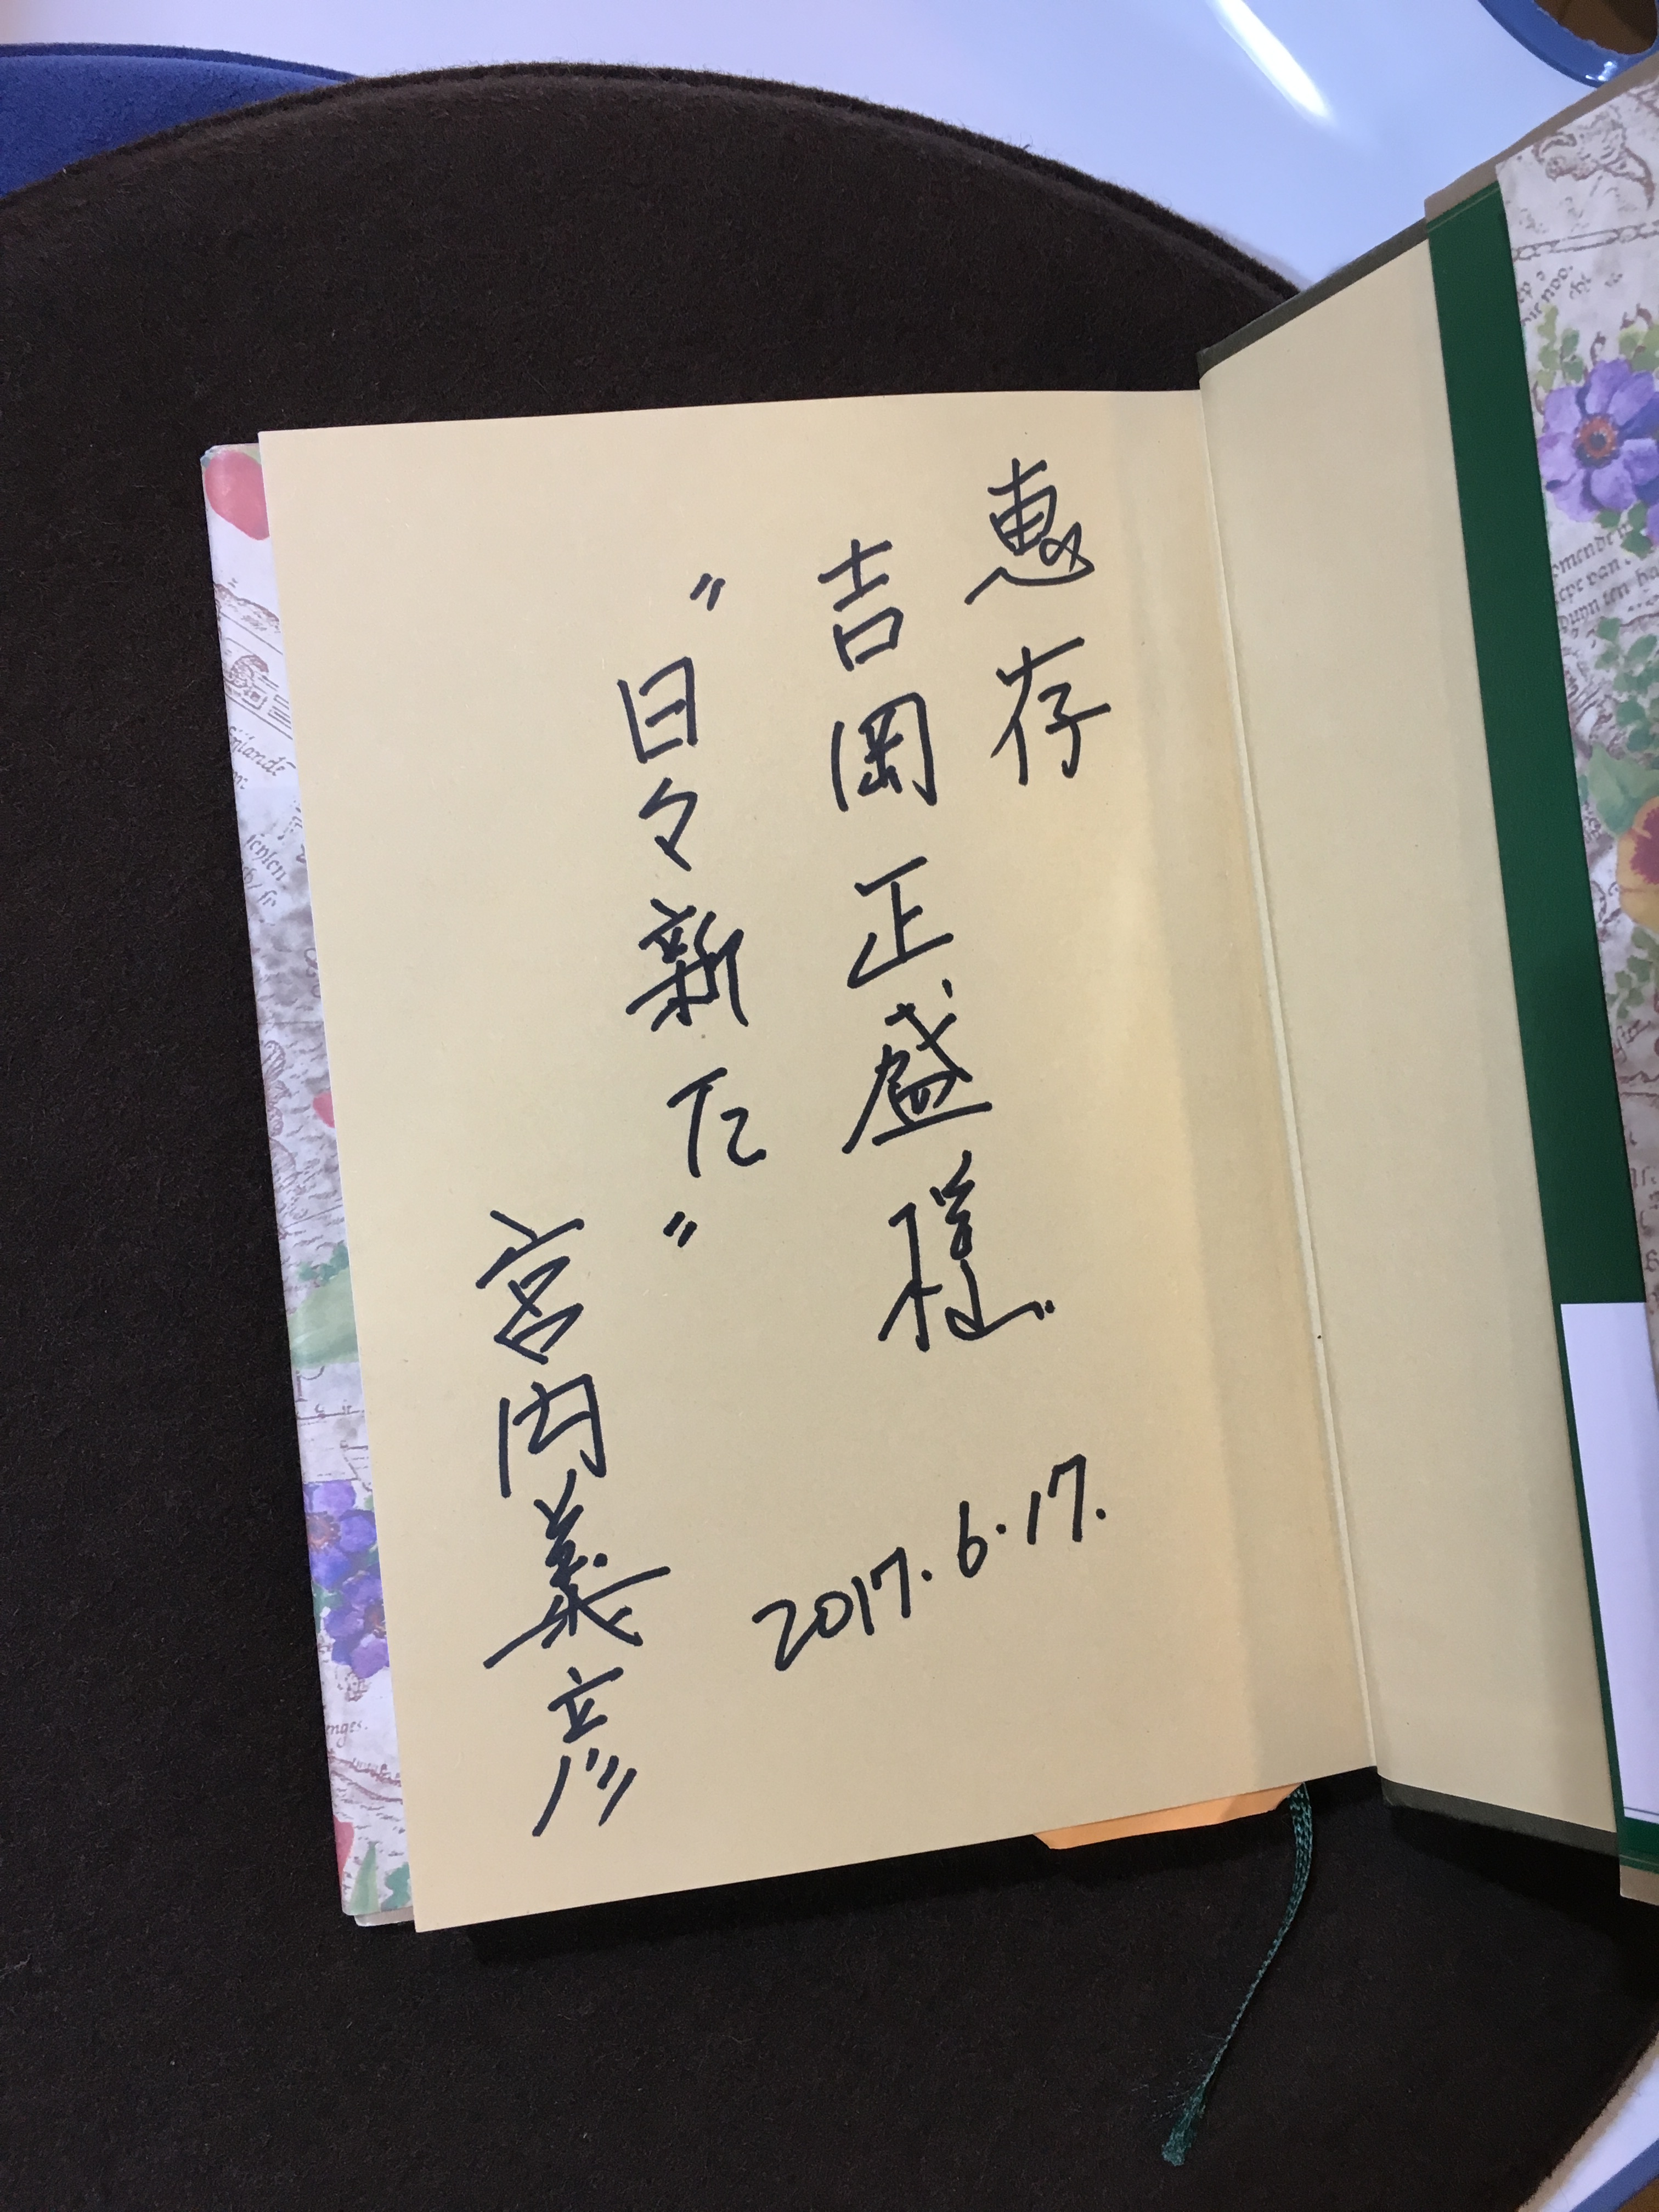 恵存
吉岡正盛様
2017.6.17.
〃日々新た〃
宮内義彦